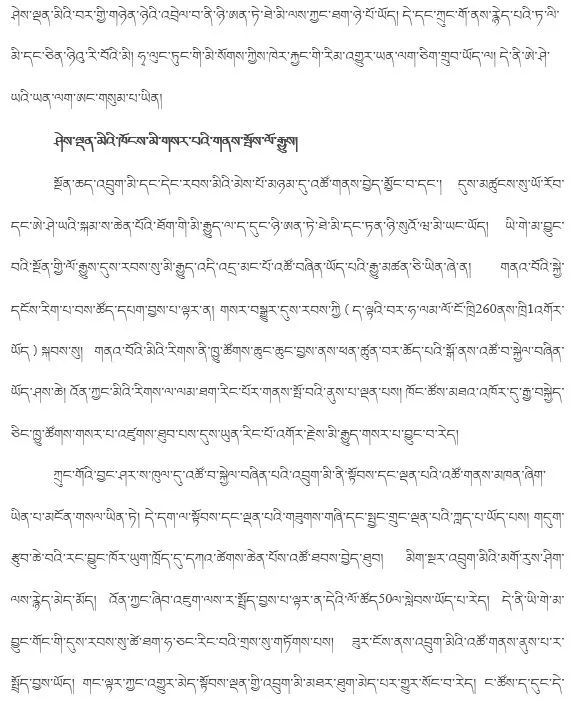 ཤེས་ལྡན་མིའི་བར་གྱི་གཉེན་ཉེའི་འབྲེལ་བ་ནི་ཉི་ཨན་ཏེ་ཐེ་མི་ལས་ཀྱང་ཐག་ཉེ་པོ་ཡོད། དེ་དང་ཀྲུང་གོ་ནས་རྙེད་པའི་ཏ་ལི་
མི་དང་ཅིན་ཉིའུ་རི་བོའི་མི། ཧྭ་ལུང་ཏུང་གི་མི་སོགས་ཀྱིས་ཁེར་རྐྱང་གི་རིམ་འགྱུར་ཡན་ལག་ཅིག་གྲུབ་ཡོད་ལ། དེ་ནི་ཨེ་ཤེ་
ཡའི་ཡན་ལག་ཨང་གསུམ་པ་ཡིན།
ཤེས་ལྡན་མིའི་ཁོངས་མི་གསར་པའི་གནས་སྤོས་ལོ་རྒྱུས།
སྔོན་ཆད་འབྲུག་མི་དང་དེང་རབས་མིའི་མེས་པོ་མཉམ་དུ་འཚོ་གནས་བྱེད་མྱོང་བ་དང་། དུས་མཚུངས་སུ་ཡོ་རོབ་
དང་ཨེ་ཤེ་ཡའི་སྐམ་ས་ཆེན་པོའི་ཐོག་གི་མི་རྒྱུད་ལ་ད་དུང་ཉི་ཨན་ཏེ་ཐེ་མི་དང་ཏན་ཉི་སུའོ་ཝ་མི་ཡང་ཡོད། ཡི་གེ་མ་བྱུང་
བའི་སྔོན་གྱི་ལོ་རྒྱུས་དུས་རབས་སུ་མི་རྒྱུད་འདི་འདྲ་མང་པོ་འཚོ་བཞིན་ཡོད་པའི་རྒྱུ་མཚན་ཅི་ཡིན་ཞེ་ན། གནའ་བོའི་སྐྱེ་
དངོས་རིག་པ་བས་ཚོད་དཔག་བྱས་པ་ལྟར་ན། གསར་བསྒྱུར་དུས་རབས་ཀྱི ( ད་ལྟའི་བར་ཧ་ལམ་ལོ་ངོ་ཁྲི260ནས་ཁྲི1འགོར་
ཡོད ) སྐབས་སུ། གནའ་བོའི་མིའི་རིགས་ནི་ཁྱུ་ཚོགས་ཆུང་ཆུང་བྱས་ནས་ཕན་ཚུན་བར་ཆོད་པའི་སྒོ་ནས་འཚོ་བ་སྐྱེལ་བཞིན་
ཡོད་ཤས་ཆེ། འོན་ཀྱང་མིའི་རིགས་ལ་ལམ་ཐག་རིང་པོར་གནས་སྤོ་བའི་ནུས་པ་ལྡན་པས། ཁོང་ཚོས་མཐའ་འཁོར་དུ་རྒྱ་བསྐྱེད་
ཅིང་ཁྱུ་ཚོགས་གསར་པ་འཛུགས་ཐུབ་པས་དུས་ཡུན་རིང་པོ་འགོར་རྗེས་མི་རྒྱུད་གསར་པ་བྱུང་བ་རེད།
ཀྲུང་གོའི་བྱང་ཤར་ས་ཁུལ་དུ་འཚོ་བ་སྐྱེལ་བཞིན་པའི་འབྲུག་མི་ནི་སྟོབས་དང་ལྡན་པའི་འཚོ་གནས་མཁན་ཞིག་
ཡིན་པ་མངོན་གསལ་ཡིན་ཏེ། དེ་དག་ལ་སྟོབས་དང་ལྡན་པའི་གཟུགས་གཞི་དང་སྤྱང་གྲུང་ལྡན་པའི་ཀླད་པ་ཡོད་པས། གདུག་
རྩུབ་ཆེ་བའི་རང་བྱུང་ཁོར་ཡུག་ཁྲོད་དུ་དཀའ་ཚེགས་ཆེན་པོས་འཚོ་ཐབས་བྱེད་ཐུབ། མིག་སྔར་འབྲུག་མིའི་མགོ་རུས་ཤིག་
ལས་རྙེད་མེད་མོད། འོན་ཀྱང་ཞིབ་འཇུག་ལས་ར་སྤྲོད་བྱས་པ་ལྟར་ན་དེའི་ལོ་ཚོད50ལ་སླེབས་ཡོད་པ་རེད། དེ་ནི་ཡི་གེ་མ་
བྱུང་གོང་གི་དུས་རབས་སུ་ཚེ་ཐག་ཧ་ཅང་རིང་བའི་གྲས་སུ་གཏོགས་པས། ཟུར་ངོས་ནས་འབྲུག་མིའི་འཚོ་གནས་ནུས་པ་ར་
སྤྲོད་བྱས་ཡོད། གང་ལྟར་ཀྱང་འགྱུར་མེད་སྟོབས་ལྡན་གྱི་འབྲུག་མི་མཐར་ཐུག་མེད་པར་གྱུར་སོང་བ་རེད། ང་ཚོས་ད་དུང་དེ་